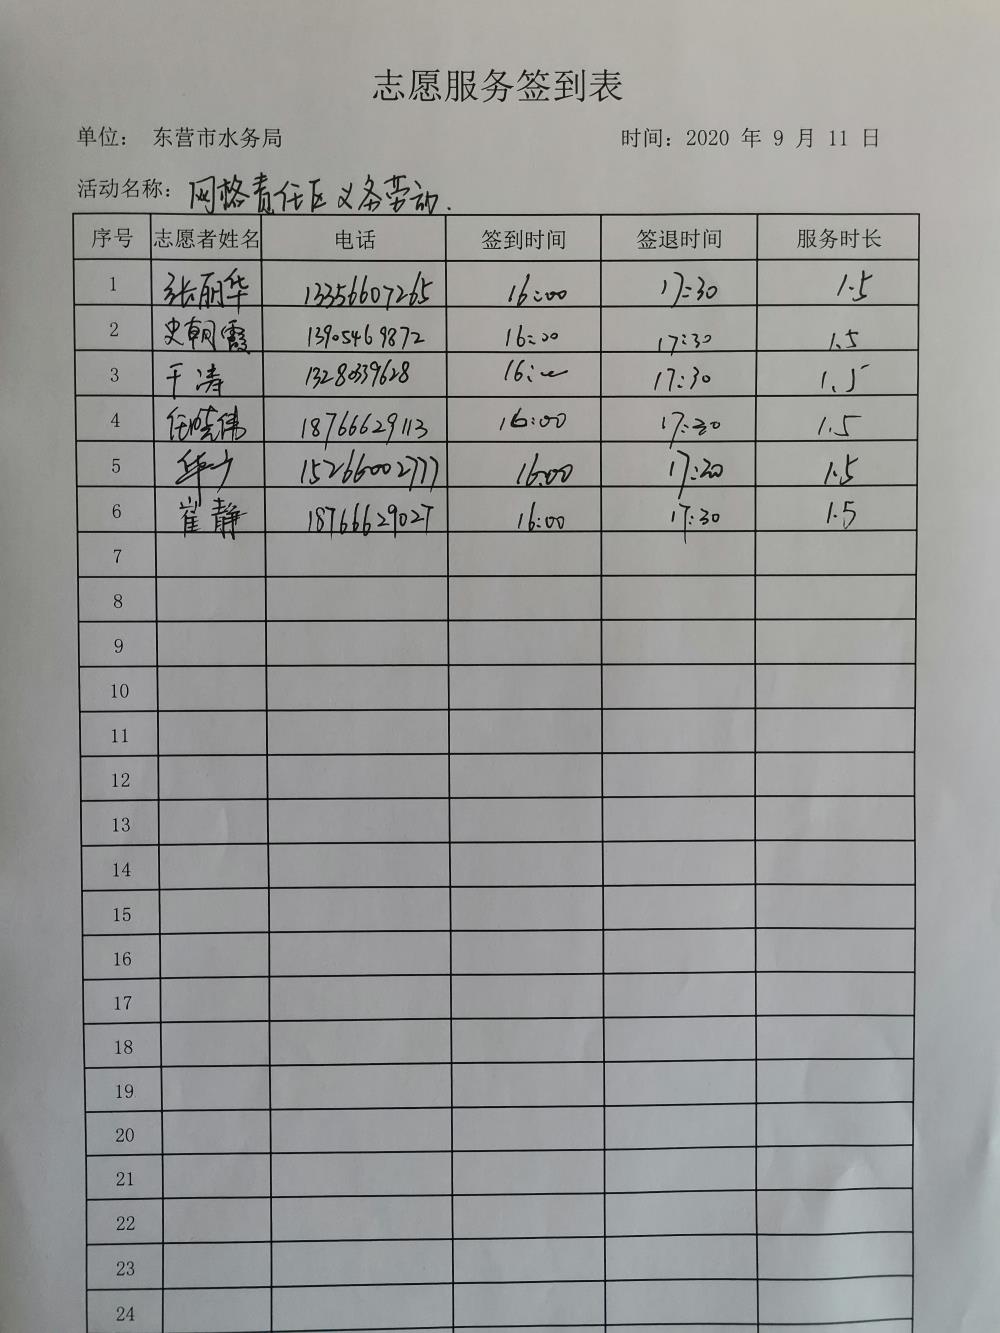 志愿服务签到表
单位： 东营市水务局 时间：2020 年 9 月 11 日
活动名称：网格责任区义务劳动.
序号 志愿者姓名 电话 签到时间 签退时间 服务时长
1 张丽华 13356607265 16:00 17:30 1.5
2 史朝霞 13905469872 16:00 17:30 1.5
3 于涛 13280339628 16:00 17:30 1.5
4 任晓伟 18766629113 16:00 17:30 1.5
5 15266002777 16:00 17:30 1.5
6 崔静 18766629027 16:00 17:30 1.5
7
8
9
10
11
12
13
14
15
16
17
18
19
20
21
22
23
24